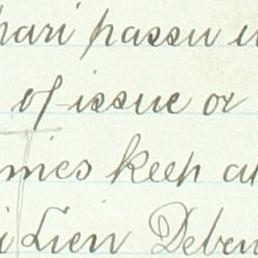 pari passu
of issue or
keep
Lien Deben